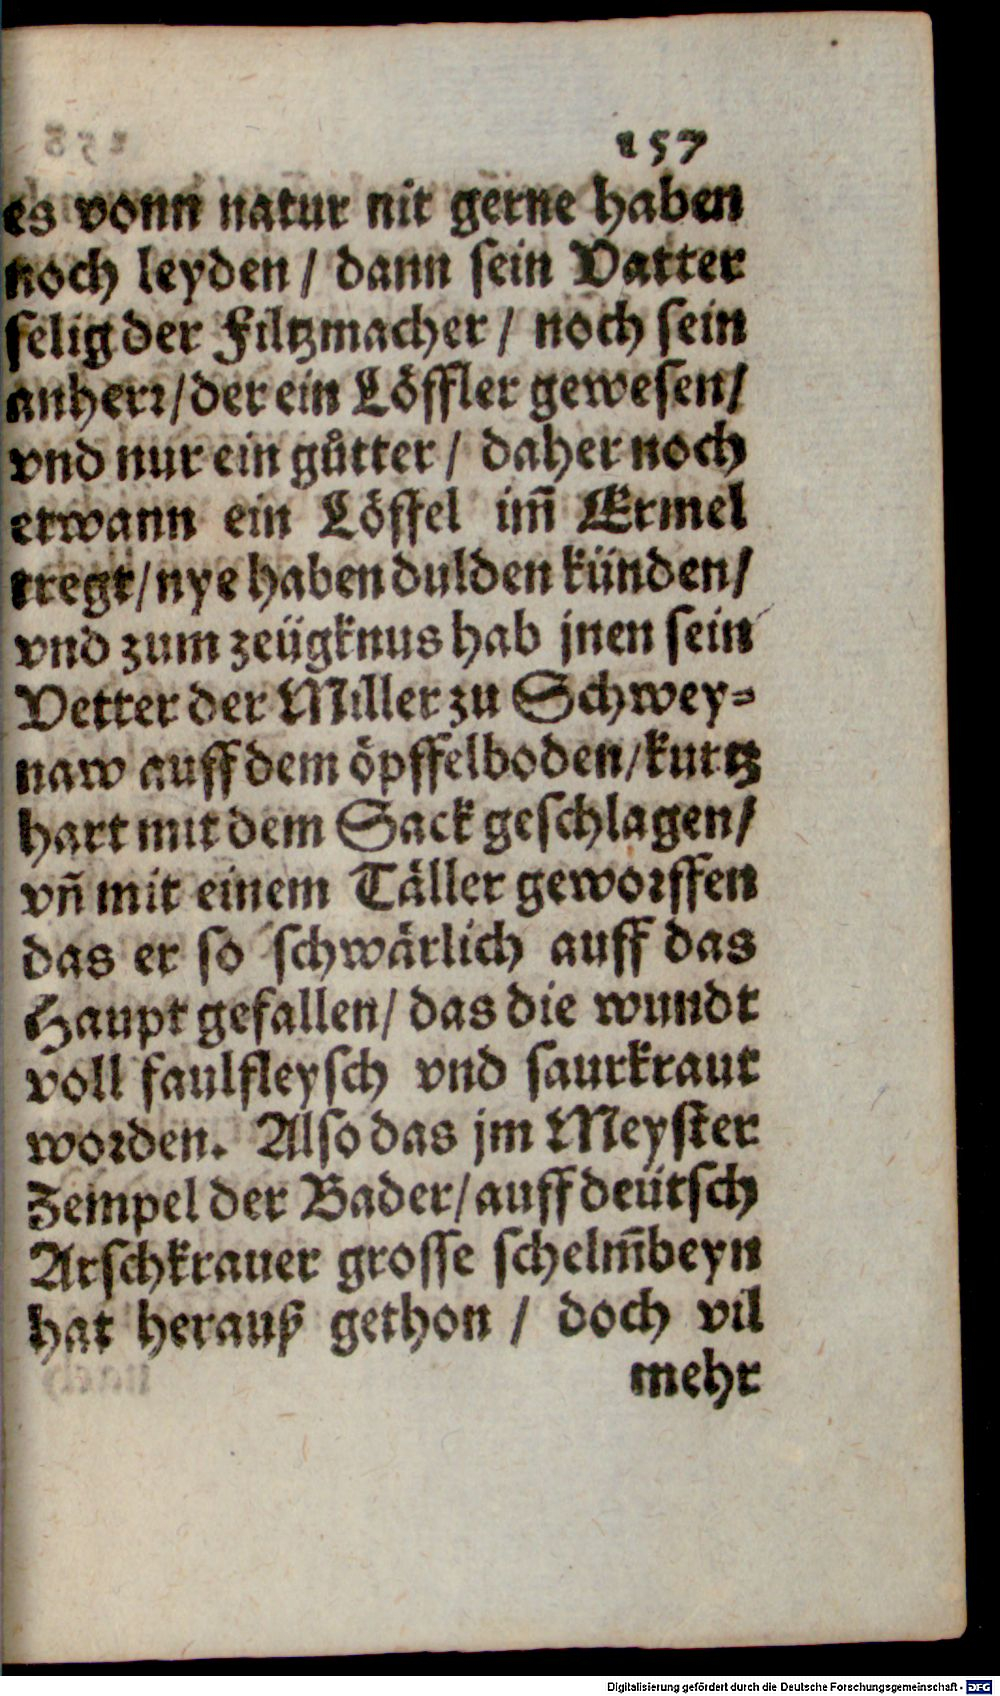 157
es vonn natur nit gerne haben
noch leyden / dann sein Vatter
selig der Filtzmacher / noch sein
anherꝛ / der ein Löffler gewesen /
vnd nur ein gůtter / daher noch
etwann ein Löffel im̄ Ermel
tregt / nye haben dulden künden /
vnd zum zeügknus hab jnen sein
Vetter der Miller zu Schwey⸗
naw auff dem öpffelboden / kurtz
hart mit dem Sack geschlagen /
vn̄ mit einem Täller gewoꝛffen
das er so schwärlich auff das
Haupt gefallen / das die wundt
voll faulfleysch vnd saurkraut
woꝛden. Also das jm Meyster
Zempel der Bader / auff deütsch
Arschkrauer grosse schelm̄beyn
hat herauß gethon / doch vil
mehr
Digitalisierung gefördert durch die Deutsche Forschungsgemeinschaft - DFG